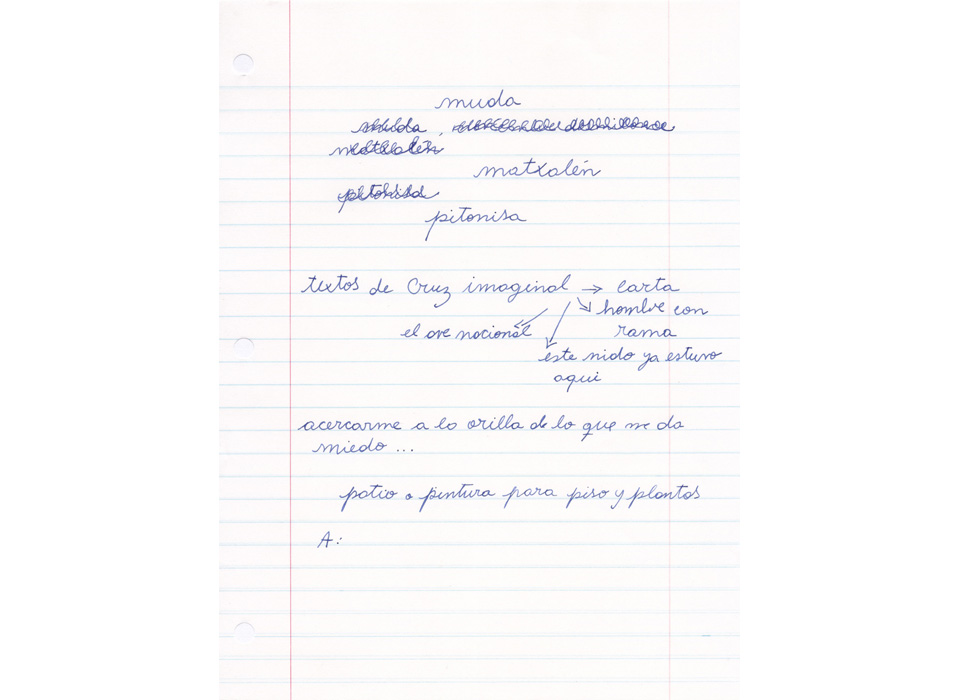 muda
matxalén
pitonisa
textos de Cruz imaginal → carta
hombre con
el ave nacional rama
este nido ya estuvo
aqui
acercarme a la orilla de lo que me da
miedo ...
patio o pintura para piso y plantas
A: